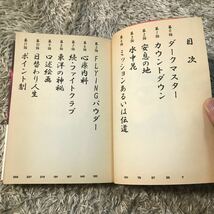 目次
第一話 ダークマスター
第二話 カウントダウン
第三話 安息の地
第四話 水中花
第五話 ミッションあるいは伝道
第六話 FLYINGパウダー
第七話 心療内科
第八話 続・ファイトクラブ
第九話 東洋の神秘
第十話 口述絵画
第十一話 日替わり人生
第十二話 ポイント制